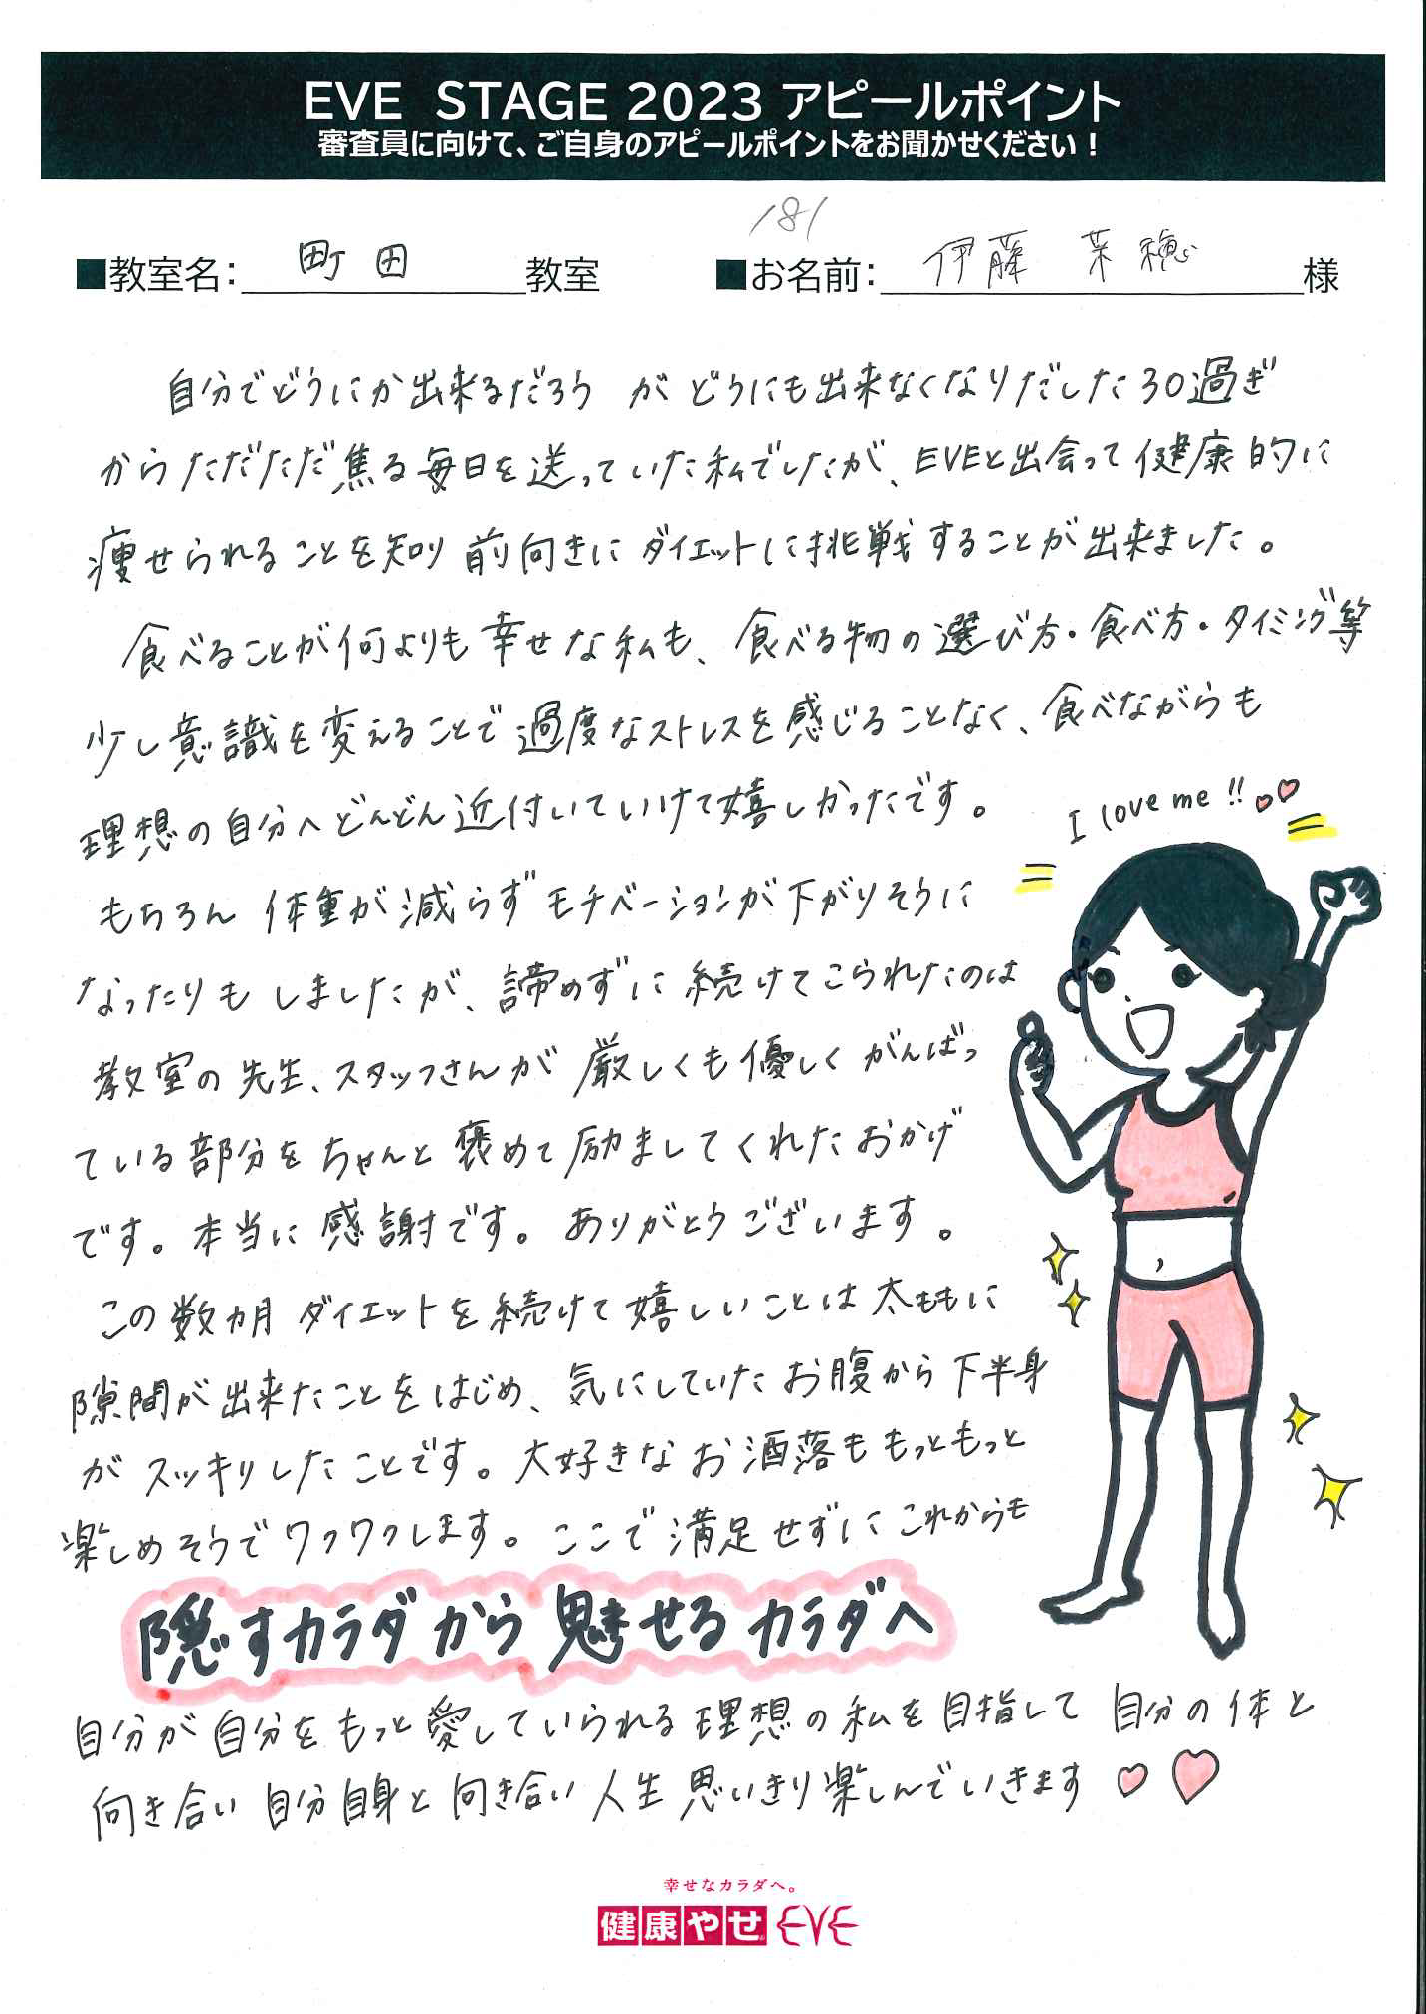 EVE STAGE 2023 アピールポイント
審査員に向けて、ご自身のアピールポイントをお聞かせください！
181
■教室名：町田教室 ■お名前：伊藤 菜穂様
自分でどうにか出来るだろう が どうにも出来なくなりだした30過ぎ
からただただ焦る毎日を送っていた私でしたが、EVEと出会って健康的に
痩せられることを知り 前向きに ダイエットに挑戦することが出来ました。
食べることが何よりも幸せな私も、食べる物の選び方・食べ方・タイミング等
少し意識を変えることで過度なストレスを感じることなく、食べながらも
理想の自分へどんどん近付いていけて嬉しかったです。
もちろん 体重が減らずモチベーションが下がりそうに
なったりもしましたが、諦めずに続けてこられたのは
教室の先生、スタッフさんが厳しくも優しくがんばっ
ている部分をちゃんと褒めて励ましてくれたおかげ
です。本当に感謝です。ありがとうございます。
この数カ月 ダイエットを続けて嬉しいことは太ももに
隙間が出来たことをはじめ、気にしていたお腹から下半身
がスッキリしたことです。大好きなお洒落ももっともっと
楽しめそうでワクワクします。ここで満足せずにこれからも
隠すカラダから魅せるカラダへ
自分が自分をもっと愛していられる理想の私を目指して 自分の体と
向き合い 自分自身と向き合い 人生思いきり楽しんでいきます
I love me!!
幸せなカラダへ。
健康やせ EVE